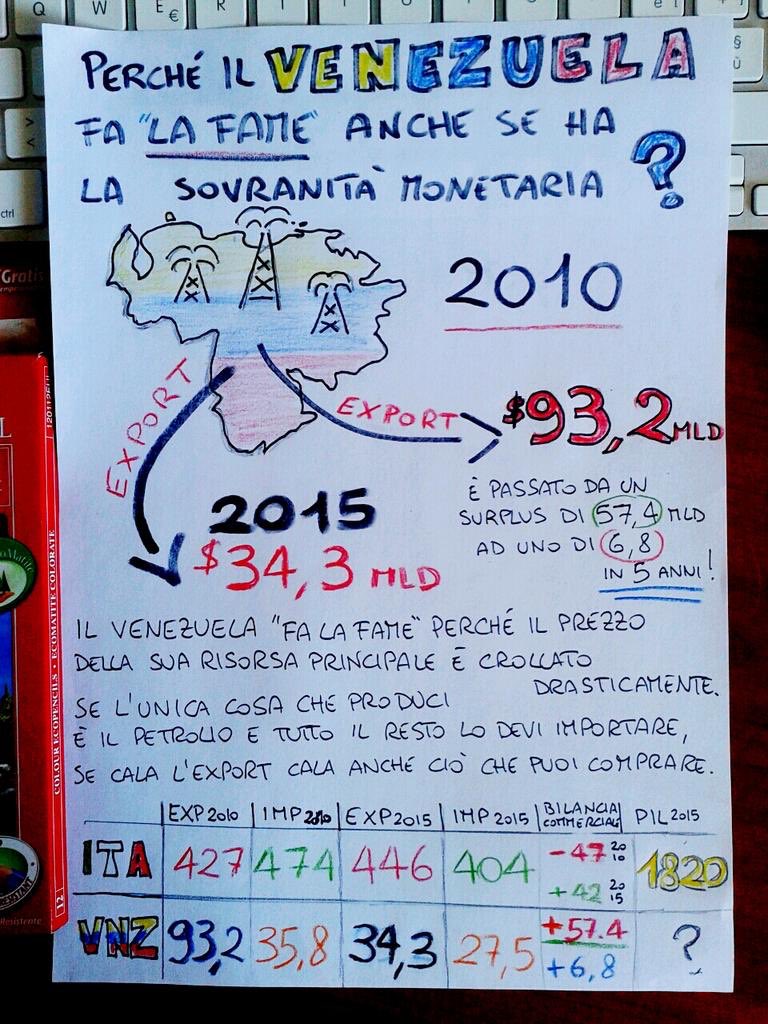 Q W E €
PERCHÉ IL VENEZUELA
FA "LA FAME" ANCHE SE HA
LA SOVRANITÀ MONETARIA ?
ctrl
Gratis
2010
EXPORT
EXPORT
$93,2 MLD
È PASSATO DA UN
SURPLUS DI 57,4 MLD
AD UNO DI 6,8
IN 5 ANNI!
2015
$34,3 MLD
IL VENEZUELA "FA LA FAME" PERCHÉ IL PREZZO
DELLA SUA RISORSA PRINCIPALE È CROLLATO
DRASTICAMENTE.
SE L'UNICA COSA CHE PRODUCI
È IL PETROLIO E TUTTO IL RESTO LO DEVI IMPORTARE,
SE CALA L'EXPORT CALA ANCHE CIÒ CHE PUOI COMPRARE.
EXP 2010 IMP 2010 EXP 2015 IMP 2015 BILANCIA COMMERCIALE PIL 2015
ITA 427 474 446 404 -47 2010 +42 2015 1820
VNZ 93,2 35,8 34,3 27,5 +57.4 +6,8 ?
COLOUR ECOPENCILS • ECOMATITE COLORATE
12
Resistente